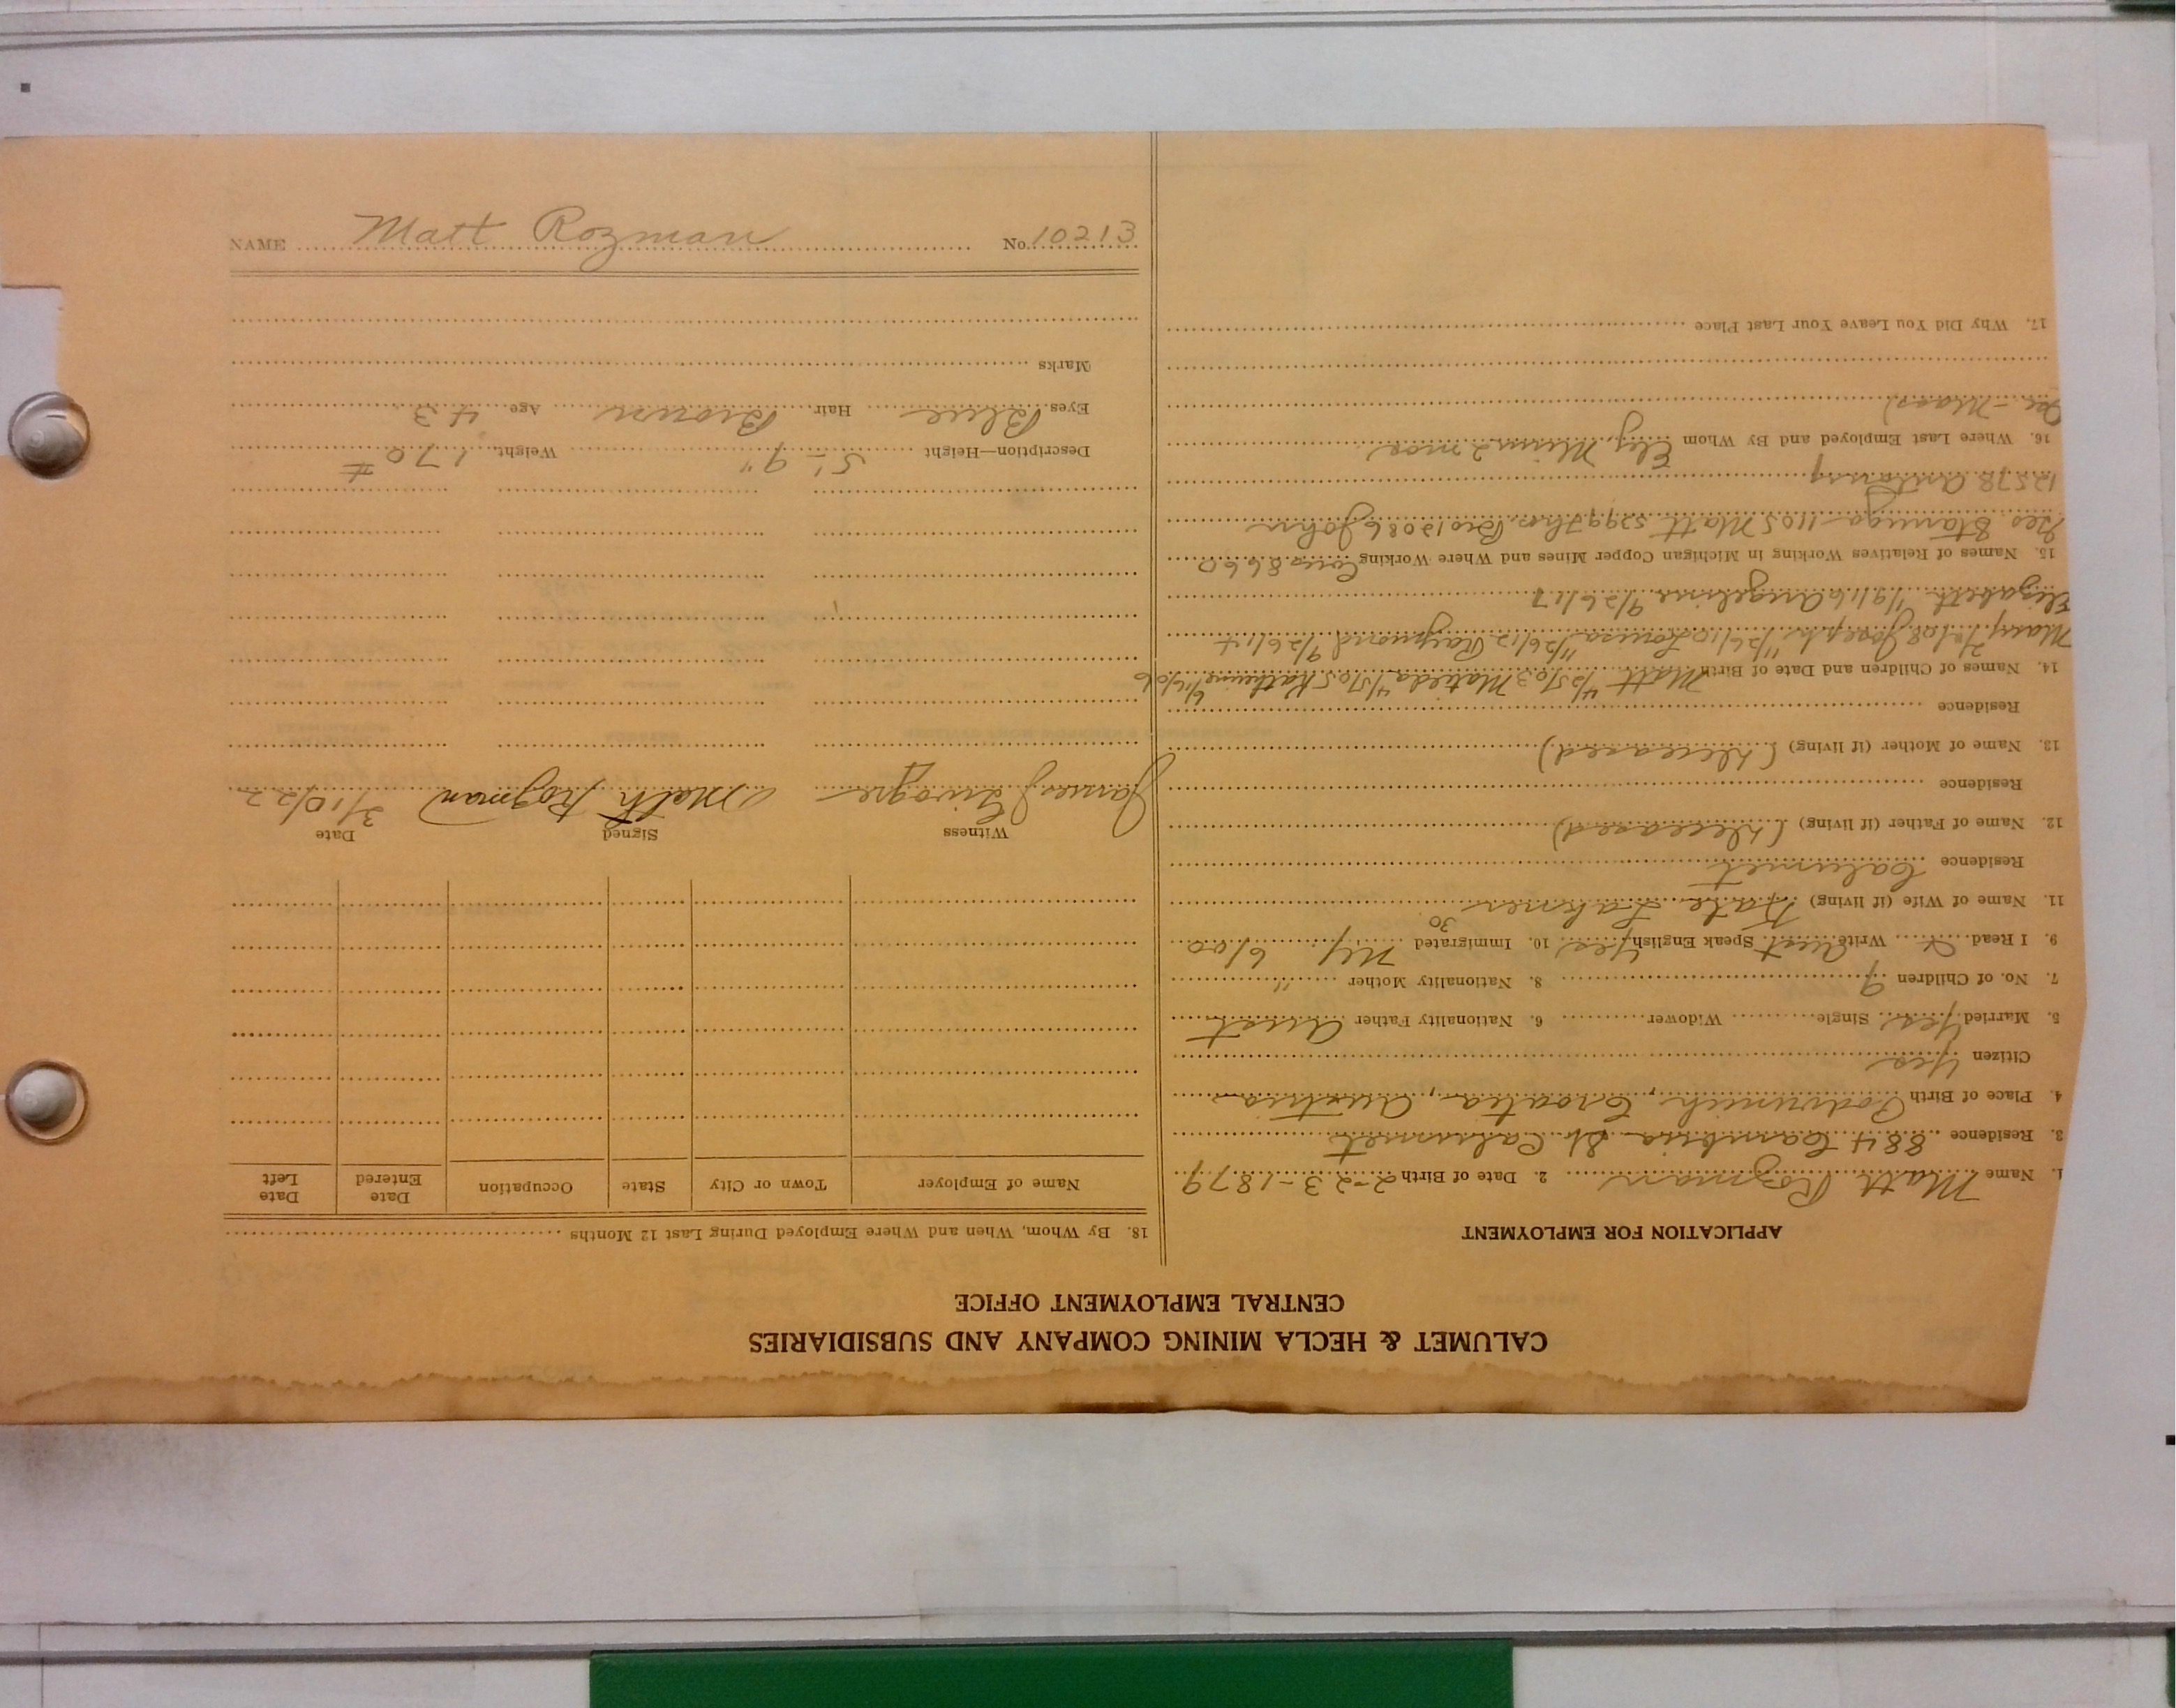 CALUMET & HECLA MINING COMPANY AND SUBSIDIARIES
CENTRAL EMPLOYMENT OFFICE
APPLICATION FOR EMPLOYMENT
1. Name Math Rozman 2. Date of Birth 2-23-1879
3. Residence 884 Cambria St. Calumet
4. Place of Birth Croatia, Austria
Citizen Yes
5. Married Yes Single Widower 6. Nationality Father Aust
7. No. of Children 9 8. Nationality Mother "
9. I Read Write Aust Speak English Yes 10. Immigrated NY 6/00
30
11. Name of Wife (if living) Kate
Residence Calumet
12. Name of Father (if living) (deceased)
Residence
13. Name of Mother (if living) (deceased)
Residence
14. Names of Children and Date of Birth Matt 4/25/03 Matilda 4/5/05 Katherine 6/16/06
Mary Joseph 11/26/10 Louisa 11/26/12 Raymond 9/26/14
Elizabeth 1/9/16 Angeline 9/26/17
15. Names of Relatives Working in Michigan Copper Mines and Where Working Cous 8660
Geo Stanega 1105 Matt 5299 Thos. Bro 12086 John
12578 Antony
16. Where Last Employed and By Whom Ely, Minn 2 mos
17. Why Did You Leave Your Last Place
18. By Whom, When and Where Employed During Last 12 Months
Name of Employer Town or City State Occupation Date Entered Date Left
Witness Signed Date
James J Math Rozman 3/10/22
Description—Height 5'-9" Weight 170 #
Eyes Blue Hair Brown Age 43
Marks
NAME Matt Rozman No. 10213